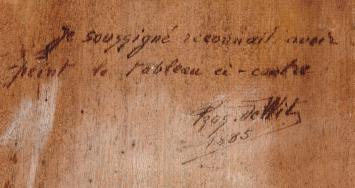 Je soussigné reconnait avoir
peint le tableau ci-contre
1885